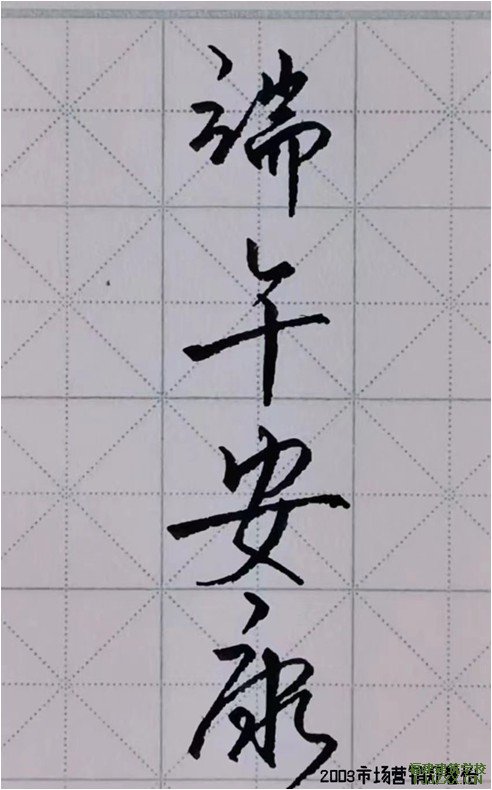 端午安康
2003市场营销